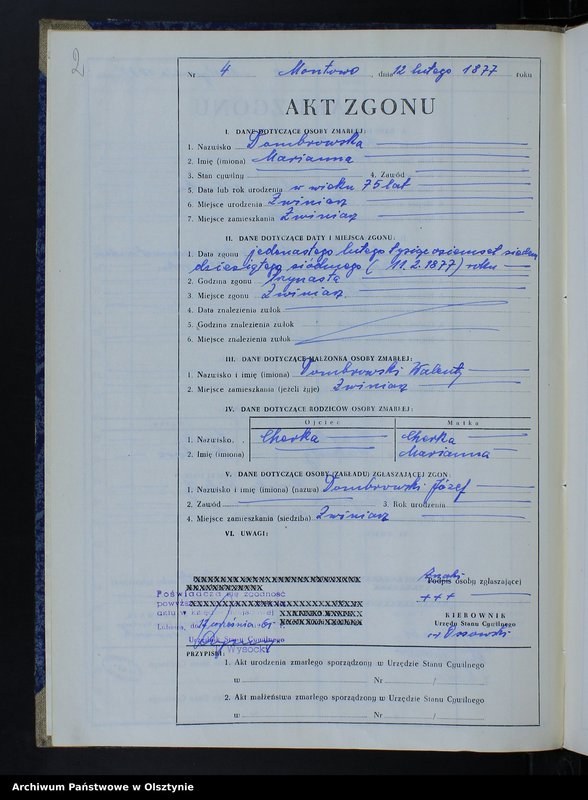 2
Nr 4 Montowo, dnia 12 lutego 1877 roku
AKT ZGONU
I. DANE DOTYCZĄCE OSOBY ZMARŁEJ:
1. Nazwisko Dombrowska
2. Imię (imiona) Marianna
3. Stan cywilny 4. Zawód
5. Data lub rok urodzenia w wieku 75 lat
6. Miejsce urodzenia Zwiniarz
7. Miejsce zamieszkania Zwiniarz
II. DANE DOTYCZĄCE DATY I MIEJSCA ZGONU:
1. Data zgonu jedenastego lutego tysiąc osiemset siedem
dziesiątego siódmego (11.2.1877) roku
2. Godzina zgonu
3. Miejsce zgonu Zwiniarz
4. Data znalezienia zwłok
5. Godzina znalezienia zwłok
6. Miejsce znalezienia zwłok
III. DANE DOTYCZĄCE MAŁŻONKA OSOBY ZMARŁEJ:
1. Nazwisko i imię (imiona) Dombrowski Walenty
2. Miejsce zamieszkania (jeżeli żyje) Zwiniarz
IV. DANE DOTYCZĄCE RODZICÓW OSOBY ZMARŁEJ:
Ojciec Matka
1. Nazwisko
2. Imię (imiona) Marianna
V. DANE DOTYCZĄCE OSOBY (ZAKŁADU) ZGŁASZAJĄCEJ ZGON:
1. Nazwisko i imię (imiona) (nazwa) Dombrowski Józef
2. Zawód 3. Rok urodzenia
4. Miejsce zamieszkania (siedziba) Zwiniarz
VI. UWAGI:
Podpis osoby zgłaszającej
+++
Poświadcza się zgodność
KIEROWNIK
Urzędu Stanu Cywilnego
Ossowski
Urzędu Stanu Cywilnego
Wysocki
PRZYPISKI:
1. Akt urodzenia zmarłego sporządzony w Urzędzie Stanu Cywilnego
w Nr /
2. Akt małżeństwa zmarłego sporządzony w Urzędzie Stanu Cywilnego
w Nr /
Archiwum Państwowe w Olsztynie